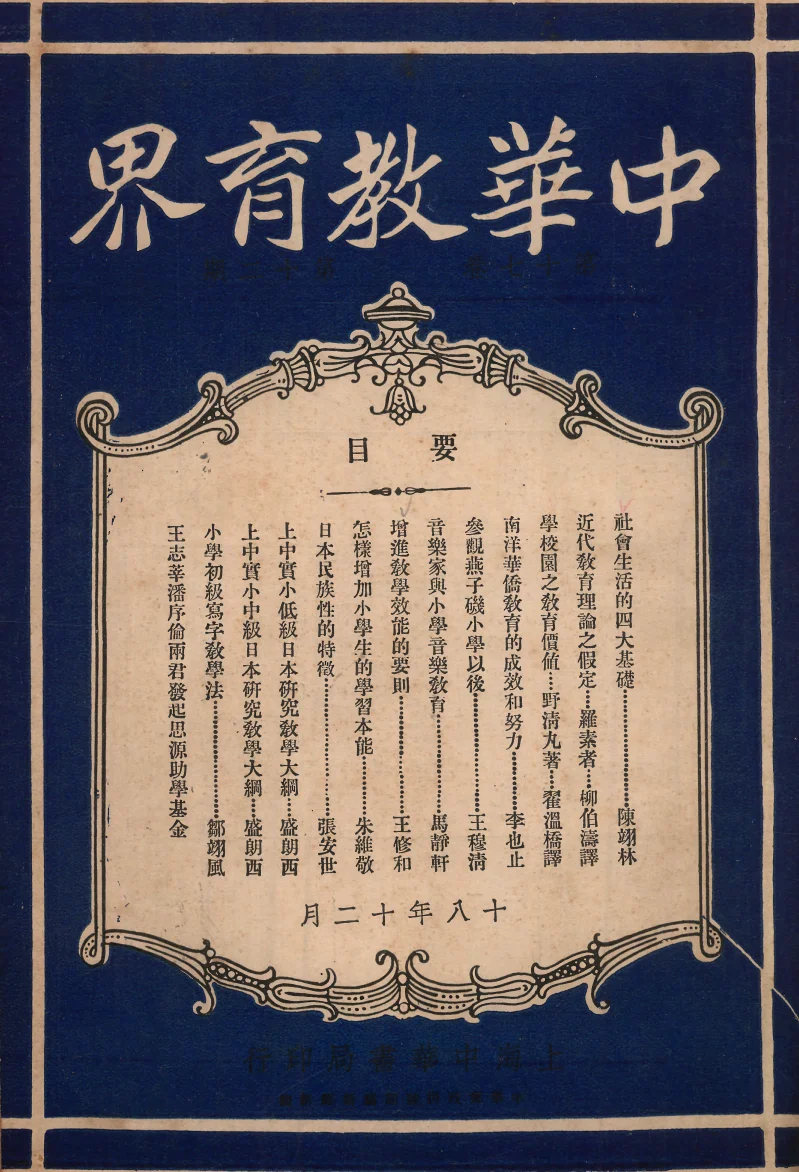 中華教育界
第十七卷 第十二期
要目
社會生活的四大基礎……………………陳翊林
近代教育理論之假定……羅素著……柳伯濤譯
學校園之教育價値……野淸九著……翟溫橋譯
南洋華僑教育的成效和努力…………李也止
參觀燕子磯小學以後……………………王穆淸
音樂家與小學音樂教育…………………馬靜軒
增進教學效能的要則……………………王修和
怎樣增加小學生的學習本能……………朱維敬
日本民族性的特徵………………………張安世
上中實小低級日本硏究教學大綱……盛朗西
上中實小中級日本硏究教學大綱……盛朗西
小學初級寫字教學法……………………鄒翊風
王志莘潘序倫兩君發起思源助學基金
十八年十二月
上海中華書局印行